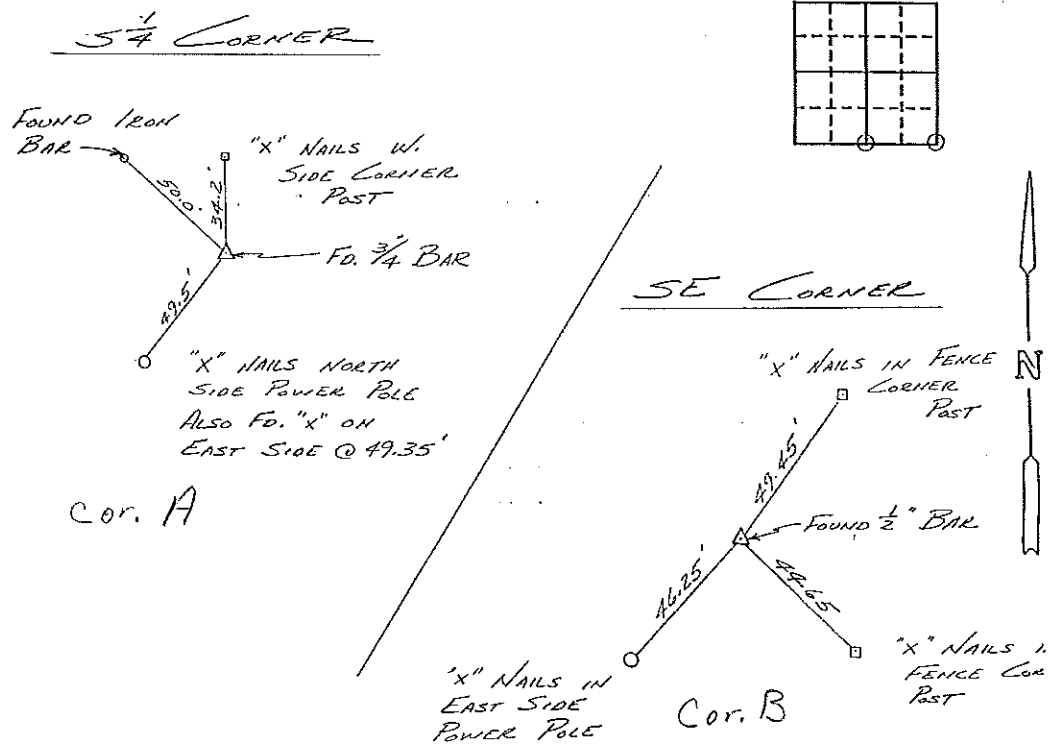 S 1/4 CORNER
FOUND IRON
BAR
"X" NAILS W.
SIDE CORNER
POST
50.0'
34.2'
FD. 3/4" BAR
49.5'
"X" NAILS NORTH
SIDE POWER POLE
ALSO FD. "X" ON
EAST SIDE @ 49.35'
Cor. A
N
SE CORNER
"X" NAILS IN FENCE
CORNER
POST
49.45'
FOUND 1/2" BAR
46.25'
44.65
"X" NAILS IN
EAST SIDE
POWER POLE
Cor. B
"X" NAILS
FENCE COR
POST